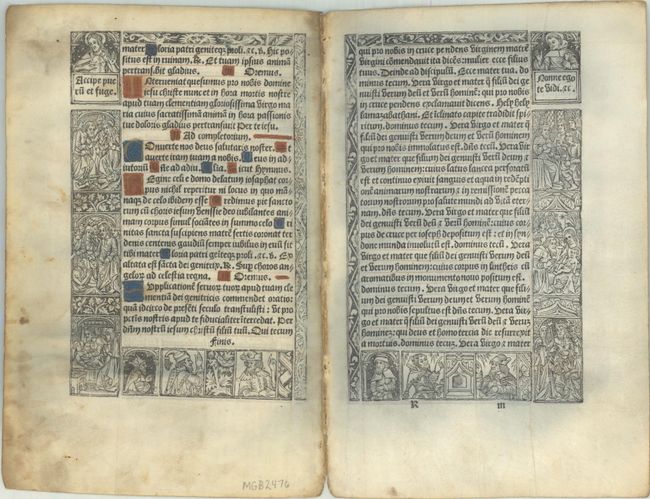 mater Gloria patri geniteqꝫ proli. ⁊c. ꝟ. Hic po-
situs est in ruinam. R. Et tuam ipsius animã
pertransibit gladius. Oremus.
Interueniat quesumus pro nobis domine
iesu christe nunc et in hora mortis nostre
apud tuam clementiam gloriosissima virgo ma
ria cuius sacratissimã animã in hora passionis
tue doloris gladius pertransiuit Per te iesu.
Ad completorium.
Conuerte nos deus salutaris noster. Et
auerte iram tuam a nobis. Deus in ad-
iutoriũ Dñe ad adiu. Gloria. Sicut Hymnus.
celo domo delatum iosaphat cor-
pus nichil reperitur ni locus in quo mã-
naqꝫ de celo ibidem esse Redimis pie sancto-
rum cũ choris iesum Venisse deo iubilantes ani-
mam corpus simul sociãtes in summo celo
nitas sancta suscipiens matrẽ fertis coronat ter
denis centenis gaudiũ semper iubilus in euũ sit
tibi mater Gloria patri geniteqꝫ proli. ⁊c. ꝟ. Ex
altata est sãcta dei genitrix. R. Sup choros an-
gelor ad celestia regna. Oremus.
Supplicationẽ seruor tuor apud tuam cle
mentiã dei genitricis commendet oratio:
quã idcirco de presẽti seculo transtulisti: vt pro
pctis nostris apud te fiducialiter itercedat. Per
dñm nostrũ iesum christũ filiũ tuũ. Qui tecum
Finis.
Accipe pue
rũ et fuge.
MGB2476
qui pro nobis in cruce pendens virginem matrẽ
virgini cõmendauit ita dicẽs: mulier ecce filius
tuus. Deinde ad discipulũ. Ecce mater tua. do
minus tecum. Vera virgo et mater q̃ filiũ dei ge
nuisti verum deũ et verũ hominẽ: qui pro nobis
in cruce pendens exclamauit dicens. Hely hely
lamazabathani. Et iclinato capite tradidit spi-
ritum. dominus tecum. Vera virgo et mater q̃
filiũ dei genuisti verum deũ et verũ hominẽ: qui
pro nobis immolatus est. dñs tecũ. Vera vir-
go et mater que filium dei genuisti verum deum ⁊
verum hominem: cuius latus lancea perfora-
tũ est et continuo exiuit sanguis et aqua in redẽpti-
onẽ animarum nostrarum: ⁊ in remissionẽ pecca
torum nostrorum pro salute mundi ad vitã eter-
nam. dñs tecum. Vera virgo et mater que filiũ
dei genuisti verũ deũ ⁊ verũ hominẽ: cuius cor-
pus de cruce per ioseph depositum est: et in sen-
done munda inuolutũ est. dominus tecum. Ve
ra virgo et mater que filiũ dei genuisti verũ deum
et verum hominem: cuius corpus in sinthesi cũ
aromatibus in monumento nouo positum est.
dominus tecum. Vera virgo et mater que fi-
lium dei genuisti verum deum et verum hominẽ
qui pro nobis sepultus est dñs tecum. Vera vir-
go et mater q̃ filiũ dei genuisti verũ deũ ⁊ verum
hominẽ: qui deus et homo tercia die resurrexit
a mortuis. dominus tecũ. Vera virgo ⁊ mater
Nonne ego
te vidi. ⁊c.
R m